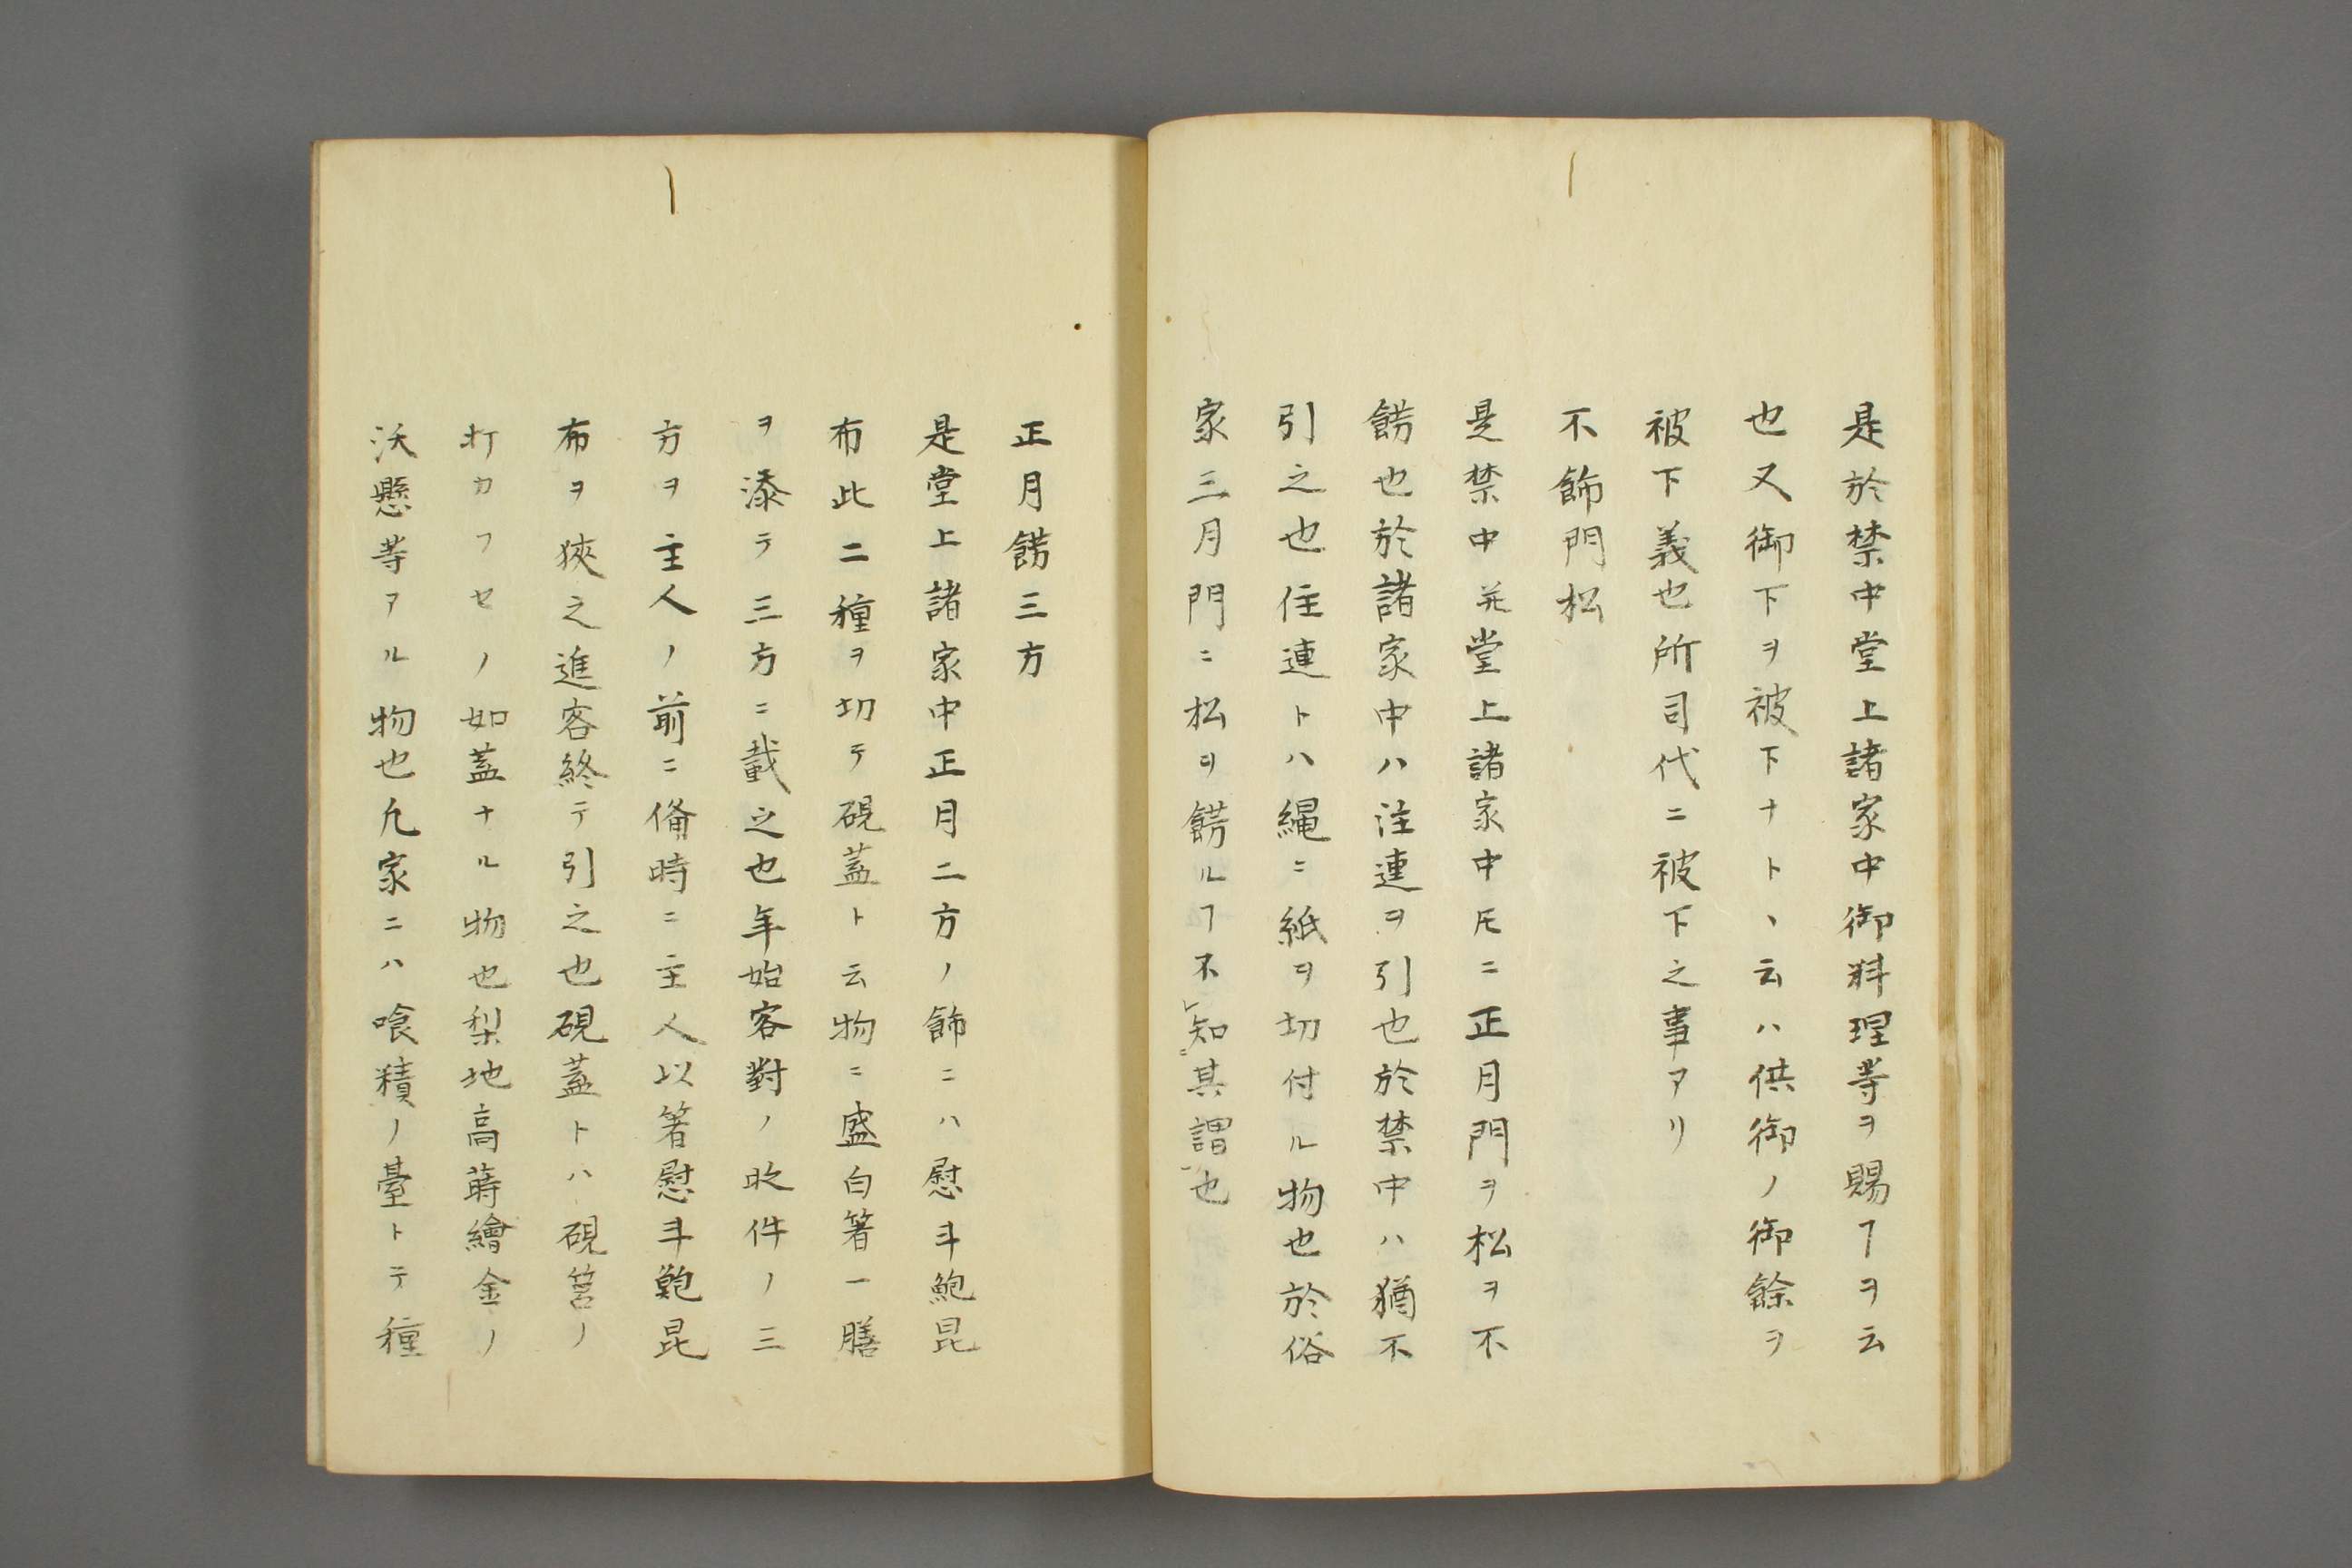 是於禁中堂上諸家中御料理等ヲ賜ヿヲ云
也又御下ヲ被下ナト、云ハ供御ノ御餘ヲ
被下義也所司代ニ被下之事アリ
不飾門松
是禁中并堂上諸家中圧ニ正月門ヲ松ヲ不
餝也於諸家中ハ注連ヲ引也於禁中ハ猶不
引之也住連トハ縄ニ紙ヲ切付ル物也於俗
家三月門ニ松ヲ餝ルヿ不レ知二其謂一也
正月餝三方
是堂上諸家中正月二方ノ飾ニハ慰斗鮑昆
布此二種ヲ切テ硯蓋ト云物ニ盛白箸一膳
ヲ漆テ三方ニ載之也年始客對ノ時件ノ三
方ヲ主人ノ前ニ備時ニ主人以箸慰斗鮑昆
布ヲ狹之進客終テ引之也硯蓋トハ硯筥ノ
打カフセノ如蓋ナル物也梨地高蒔繪金ノ
沃懸等アル物也凢家ニハ喰積ノ臺トテ種